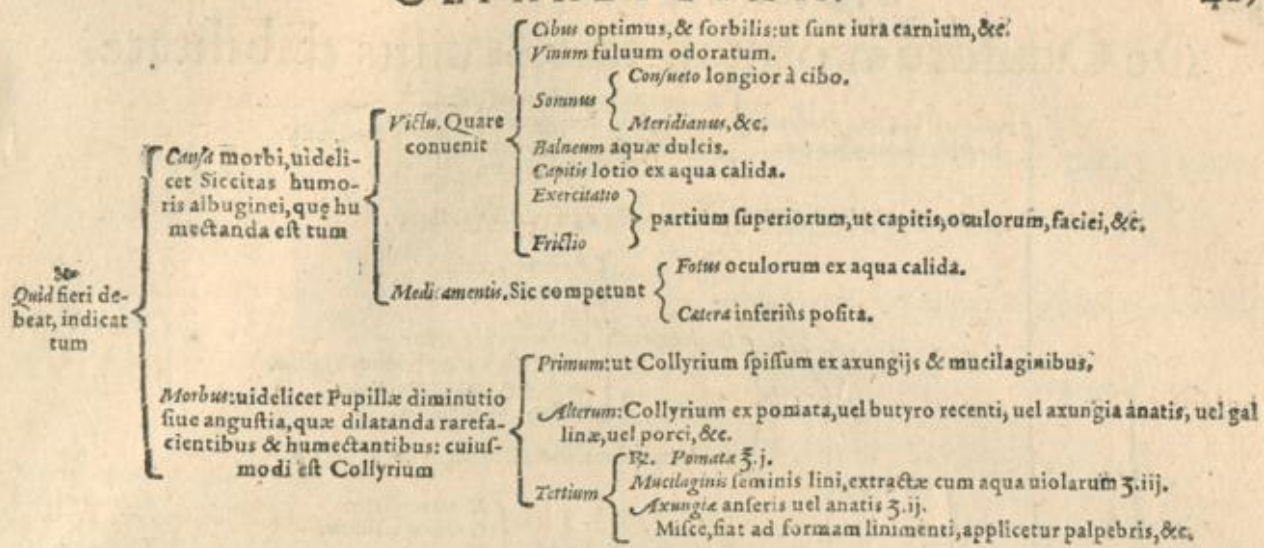 Quid fieri de-
beat, indicat
tum
Causa morbi, uideli-
cet Siccitas humo-
ris albuginei, quę hu
mectanda est tum
Victu. Quare
conuenit
Cibus optimus, & sorbilis: ut sunt iura carnium, &c.
Vinum fuluum odoratum.
Somnus
Consueto longior à cibo.
Meridianus, &c.
Balneum aquæ dulcis.
Capitis lotio ex aqua calida.
Exercitatio
Frictio
partium superiorum, ut capitis, oculorum, faciei, &c.
Medicamentis. Sic competunt
Fotus oculorum ex aqua calida.
Cætera inferiùs posita.
Morbus: uidelicet Pupillæ diminutio
siue angustia, quæ dilatanda rarefa-
cientibus & humectantibus: cuius-
modi est Collyrium
Primum: ut Collyrium spissum ex axungijs & mucilaginibus.
Alterum: Collyrium ex pomata, uel butyro recenti, uel axungia anatis, uel gal
linæ, uel porci, &c.
Tertium
℞. Pomatæ ℥.j.
Mucilaginis seminis lini, extractæ cum aqua uiolarum ʒ.iij.
Axungiæ anseris uel anatis ʒ.ij.
Misce, fiat ad formam linimenti, applicetur palpebris, &c.